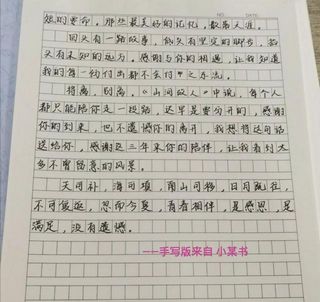 NO.          DATE.
短的生命，那些最美好的记忆，散落人涯。
回头有一路故事，低头有坚定的脚步，抬
头有未知的远方，感谢与你的相遇，让我知道
我的每一份付出都不会付之东流。
将离，别离。《山河故人》中说，每个人
都只能陪你走一段路，迟早是要分开的，感谢
你的到来，也不遗憾你的离开，我想将这句话
送给你，感谢这三年来你的陪伴，让我看到太
多不曾留意的风景。
天可补，海可填，南山可移，日月既往，
不可复追，思而今夏，青春相伴，是感恩，是
满足，没有遗憾。
——手写版来自 小某书